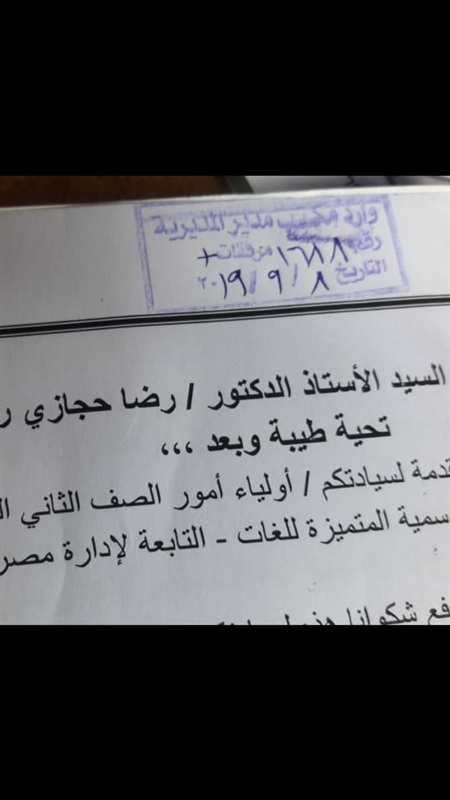 وارد مكتب مدير المديرية
رقم ١٦٨٨ مرفقات +
التاريخ ٨ / ٩ / ٢٠١٩
السيد الأستاذ الدكتور / رضا حجازي
تحية طيبة وبعد ،،،
لسيادتكم / أولياء أمور الصف الثاني
المتميزة للغات - التابعة لإدارة مصر
شكوانا